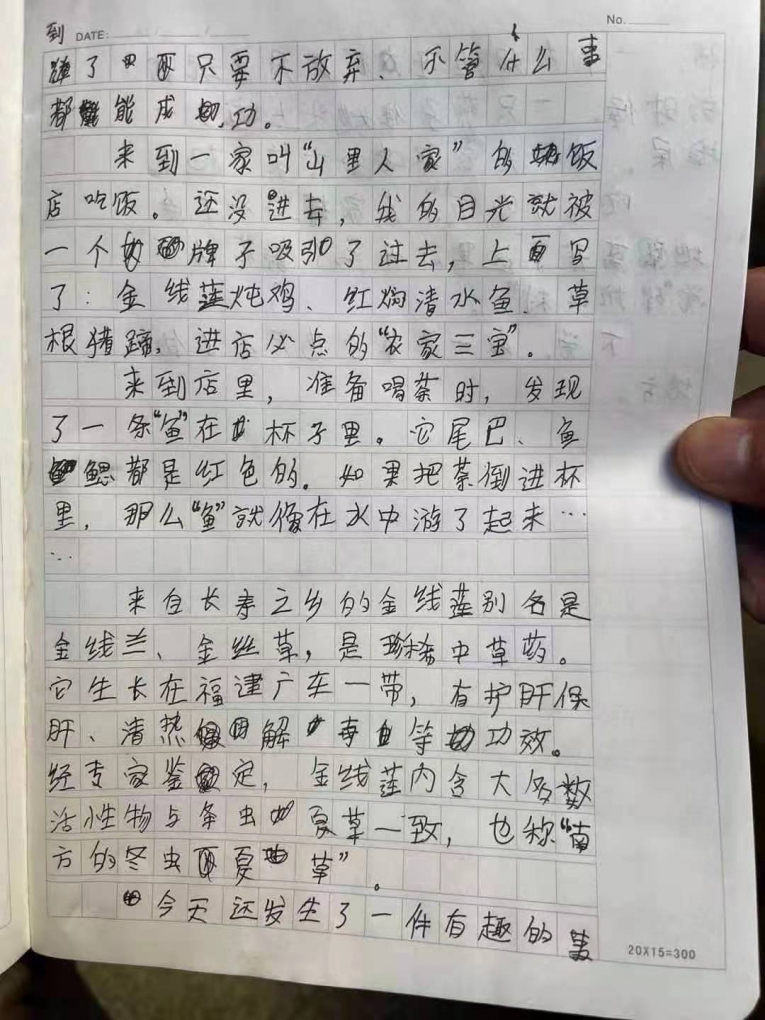 到 DATE:
No.
了 只要不放弃、不管什么事
都能成功。
来到一家叫“山里人家”的饭
店吃饭。还没进去,我的目光就被
一个牌子吸引了过去,上面写
了:金线莲炖鸡、红焖清水鱼、草
根猪蹄,进店必点的“农家三宝”。
来到店里,准备喝茶时,发现
了一条“鱼”在杯子里。它尾巴、鱼
鳃都是红色的。如果把茶倒进杯
里,那么“鱼”就像在水中游了起来…
…
来自长寿之乡的金线莲别名是
金线兰、金丝草,是珍稀中草药。
它生长在福建广东一带,有护肝保
肝、清热解毒等功效。
经专家鉴定,金线莲内含大多数
活性物与冬虫夏草一致,也称“南
方的冬虫夏草”。
今天还发生了一件有趣的事
20X15=300